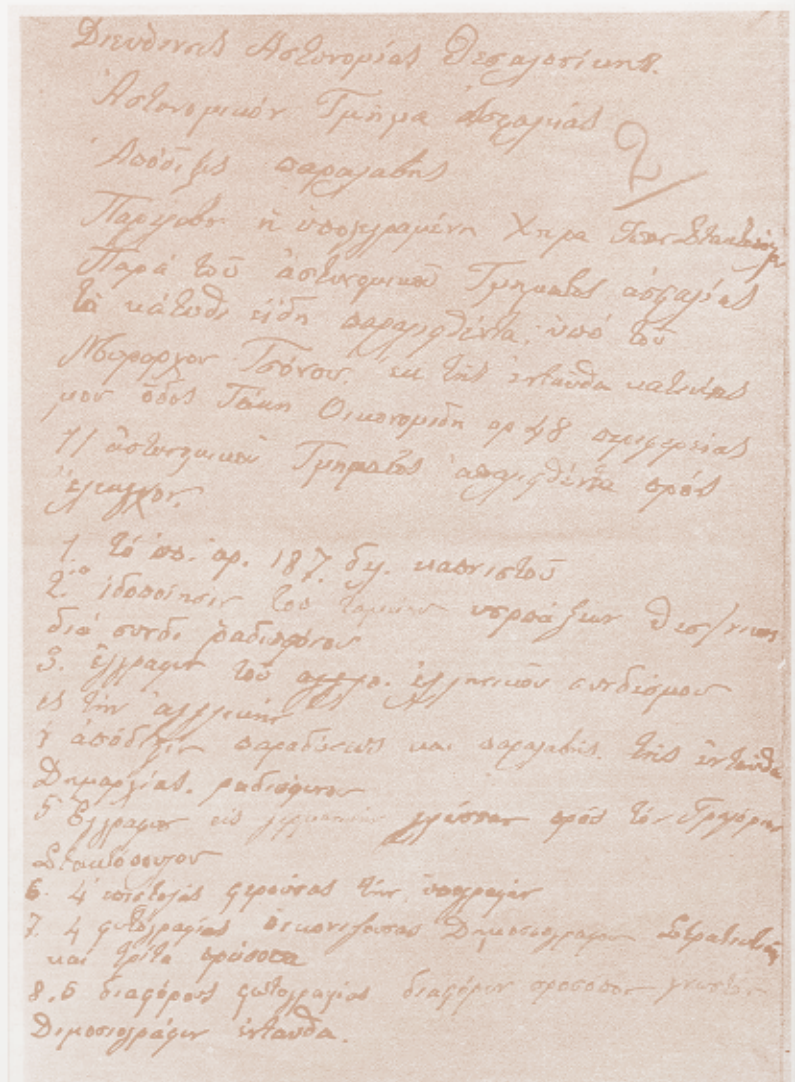 Διευθυνσις Αστυνομίας Θεσαλονίκης.
Ἀστυνομικόν Τμῆμα ἀσφαλίας
2
Ἀπόδιξις παραλαβῆς
Παρέλαβον ἡ ὑπογεγραμένη Χήρα
Παρά τοῦ ἀστυνομικοῦ Τμήματος ἀσφαλίας
τά κάτωθι εἴδη παραληφθέντα ὑπό τοῦ
Μοιράρχου Τσόνου. ἐκ τῆς ἐνταύθα κατοικίας
μου ὁδός Τάκη Οἰκονομίδη αρ 48 περιφερείας
ἀστυνομικοῦ Τμήματος πρός
ἔλενγχον.
1. Τό ὑπ. ἀρ. 187. δελ. καπνιστοῦ
2. ἰδοποίησιν τοῦ ταμείου Θες/νικης
διά συνδ. ραδιοφόνου
3. ἔγγραφον τοῦ ἑλληνικοῦ συνδέσμου
ἰς τήν ἀγγλικήν
ἀπόδιξιν παραδόσεως και παραλαβῆς. τῆς ἐνταύθα
Δημαρχίας. ραδιόφωνον
5 Ἔγγραφον εἰς γλώσσαν πρός τόν Γρηγόριον
Στακτόπουλον
6. 4 ἐπιστολάς φερούσας τήν ὑπογραφήν
7. 4 φωτογραφίας Δημοσιογράφον
και τρίτα πρόσοπα
8. 6 διαφόρους φωτογραφίας διαφόρων προσοπον γνωστόν
Διμοσιογράφων ἐνταύθα.